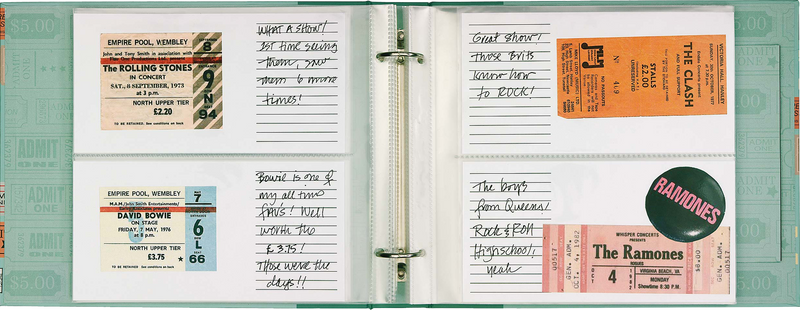 EMPIRE POOL, WEMBLEY
John and Tony Smith in association with
The ROLLING STONES
IN CONCERT
SAT., 8 SEPTEMBER, 1973
at 3 p.m.
NORTH UPPER TIER
£2.20
TO BE RETAINED. See conditions on back
8
9
N
94
WHAT A SHOW!
1ST time seeing
them, saw
them 6 more
times!
EMPIRE POOL, WEMBLEY
M.A.M./John Smith Entertainments/
DAVID BOWIE
ON STAGE
FRIDAY, 7 MAY, 1976
at 8 p.m.
NORTH UPPER TIER
£3.75
TO BE RETAINED. See conditions on back
7
6
L
66
Bowie is one of
my all time
FAV'S! Well
worth the
£3.75!
Those were the
days!!
Great show!
Those Brits
Know how
to ROCK!
VICTORIA HALL, HANLEY
SUNDAY, 30th OCTOBER, 1977
THE CLASH
AND FULL SUPPORT
STALLS
£2.00
UNRESERVED
No 419
The boys
from Queens!
Rock & Roll
Highschool!
yeah
RAMONES
WHISPER CONCERTS
PRESENTS
The Ramones
ROGUES
OCT 4 1982
VIRGINIA BEACH, VA
MONDAY
Showtime 8:30 P.M.
GEN. ADM.
OCT. 4, 1982
00517
$8.00
GEN. ADM.
00517
$5.00
ADMIT
ONE
ADMIT
ONE
$5.00
$5.00
ADMIT
ONE
$5.00